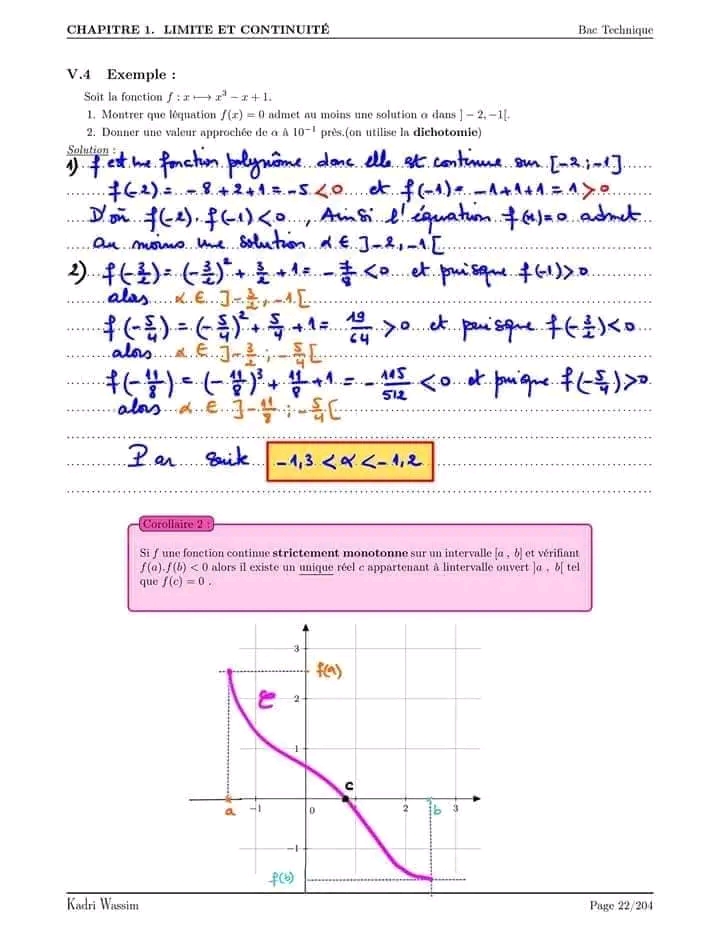 CHAPITRE 1. LIMITE ET CONTINUITÉ Bac Technique
V.4 Exemple :
Soit la fonction f : x ⟼ x³ − x + 1.
1. Montrer que léquation f(x) = 0 admet au moins une solution α dans ] − 2, −1[.
2. Donner une valeur approchée de α à 10⁻¹ près.(on utilise la dichotomie)
Solution :
1) f est une fonction polynôme donc elle est continue sur [-2 ; -1]
f(-2) = -8+2+1 = -5 <0 et f(-1) = -1+1+1 = 1 >0
D'où f(-2). f(-1) <0 , Ainsi l'équation f(x)=0 admet
au moins une solution α ∈ ]-2, -1[
2) f(-3/2) = (-3/2)² + 3/2 + 1 = -7/8 <0 et puisque f(-1)>0
alas α ∈ ]-3/2, -1[
f(-5/4) = (-5/4)² + 5/4 + 1 = 19/64 >0 et puisque f(-3/2)<0
alors α ∈ ]-3/2 ; -5/4[
f(-11/8) = (-11/8)³ + 11/8 + 1 = -115/512 <0 et puique f(-5/4)>0
alors α ∈ ]-11/8 ; -5/4[
Par suite -1,3 < α < -1,2
Corollaire 2 :
Si f une fonction continue strictement monotonne sur un intervalle [a , b] et vérifiant
f(a).f(b) < 0 alors il existe un unique réel c appartenant à lintervalle ouvert ]a , b[ tel
que f(c) = 0 .
3
f(a)
2
C
1
c
a −1 0 2 b 3
−1
f(b)
Kadri Wassim Page 22/204